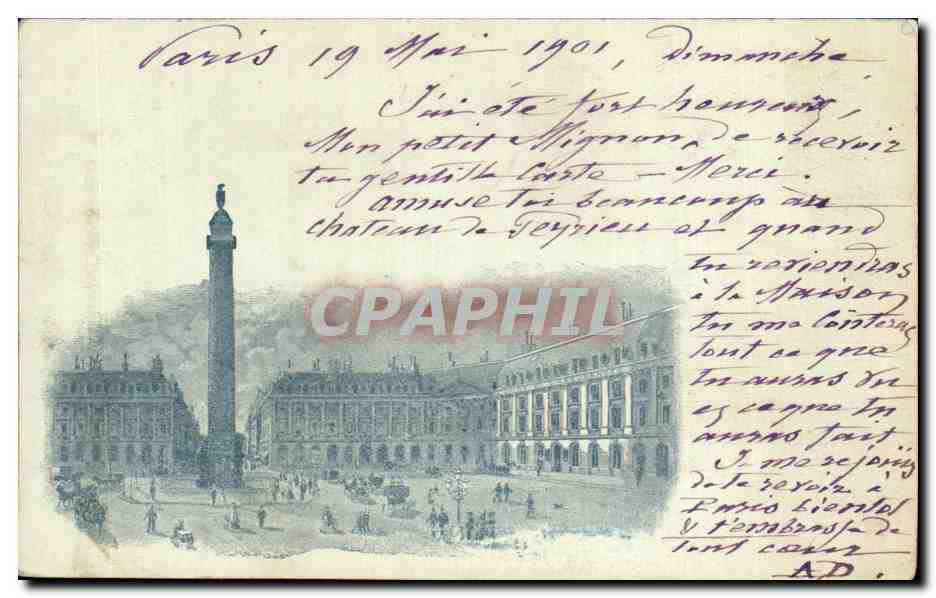 Paris 19 Mai 1901, Dimanche
J'ai été fort heureux,
Mon petit Mignon, de recevoir
ta gentille Carte - Merci.
amuse toi beaucoup au
chateau de Peyrieu et quand
tu reviendras
à la Maison
tu me Conteras
tout ce que
tu auras vu
et ce que tu
auras fait
Je me rejouis
de te revoir à
Paris bientot
& t'embrasse de
tout cœur
AD.
CPAPHIL